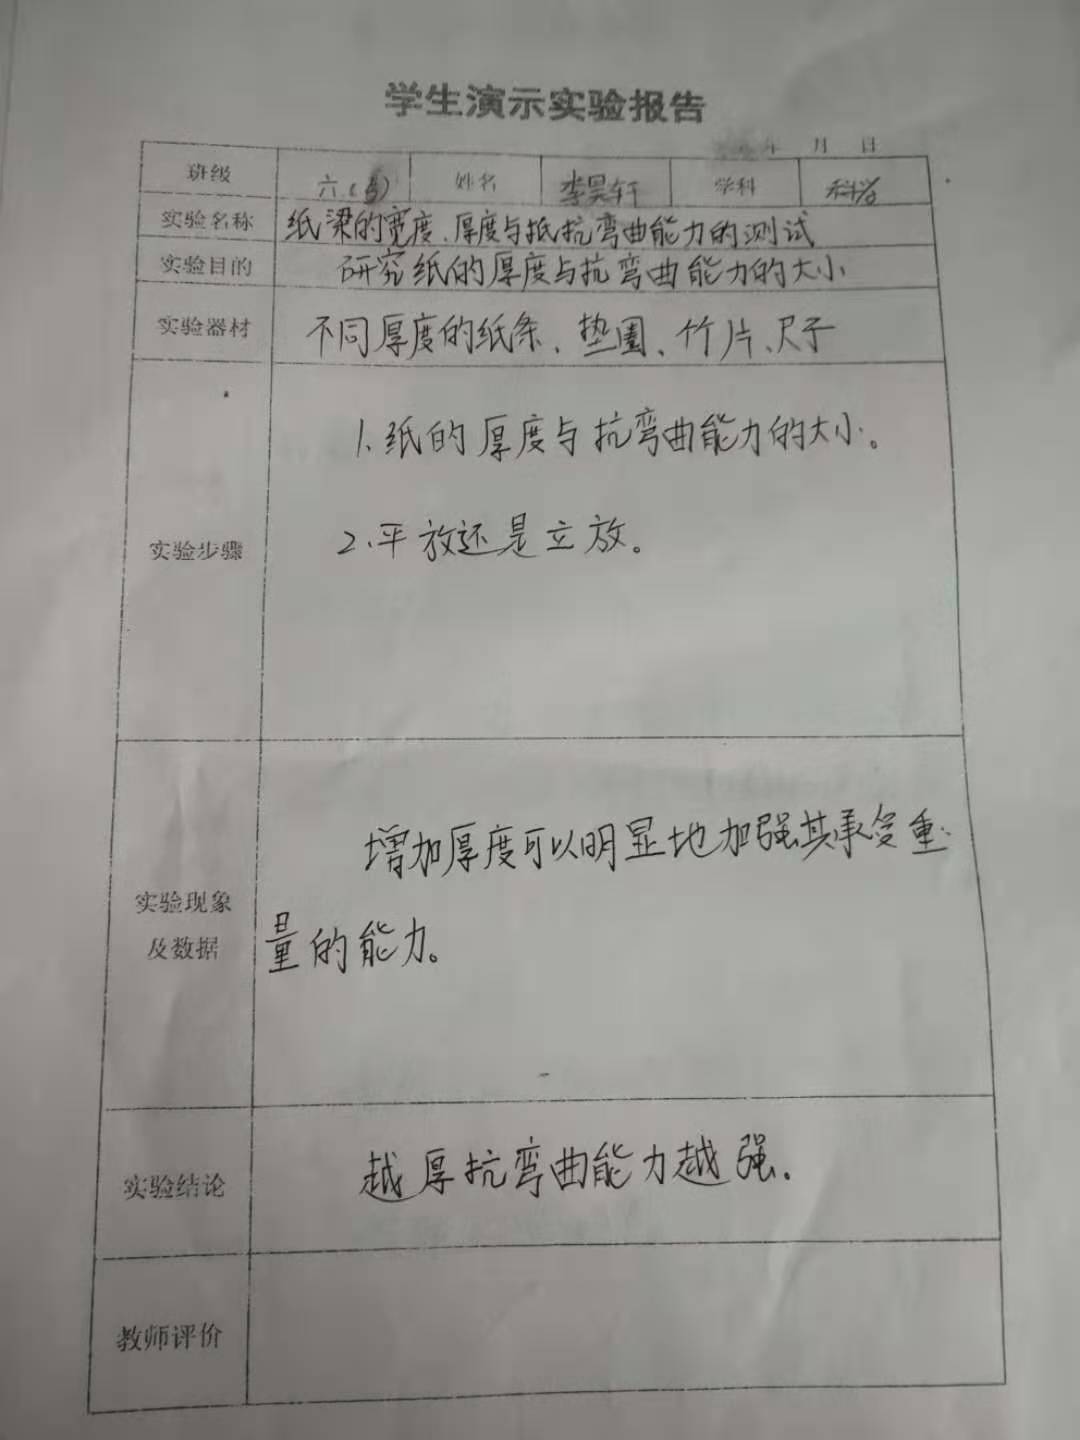 学生演示实验报告
年 月 日
班级 六( ) 姓名 李昊轩 学科 科学
实验名称 纸梁的宽度、厚度与抵抗弯曲能力的测试
实验目的 研究纸的厚度与抗弯曲能力的大小
实验器材 不同厚度的纸条、垫圈、竹片、尺子
1、纸的厚度与抗弯曲能力的大小。
实验步骤 2、平放还是立放。
增加厚度可以明显地加强其承受重
实验现象
及数据 量的能力。
实验结论 越厚抗弯曲能力越强.
教师评价